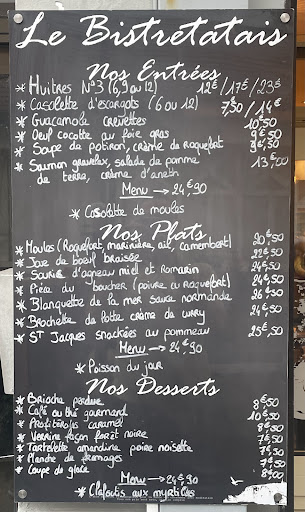 Le Bistretatais
Nos Entrées
* Huîtres N°3 (6,9 ou 12) 12€ / 17€ / 23€
* Casolette d'escargots (6 ou 12) 7,50 / 14€
* Guacamole crevettes 10€50
* Oeuf cocotte au foie gras 9€50
* Soupe de potiron, crème de roquefort 8€50
* Saumon gravelax, salade de pomme
de terre, crème d'aneth 13€00
Menu → 24€90
* Casolette de moules
Nos Plats
* Moules (Roquefort, marinière, ail, camembert) 20€50
* Joue de boeuf braisée 22€50
* Souris d'agneau miel et romarin 24€50
* Pièce du boucher (poivre ou roquefort) 24€50
* Blanquette de la mer sauce normande 26€90
* Brochette de lotte crème de curry 24€50
* ST Jacques snackées au pommeau 25€50
Menu → 24€90
* Poisson du jour
Nos Desserts
* Brioche perdue 8€50
* Café ou thé gourmand 10€50
* Profiteroles caramel 8€50
* Verrine façon forêt noire 7€50
* Tartelette amandine poire noisette 7€50
* Manche de fromages 7€50
* Coupe de glace 8€00
Menu → 24€90
* Clafoutis aux myrtilles